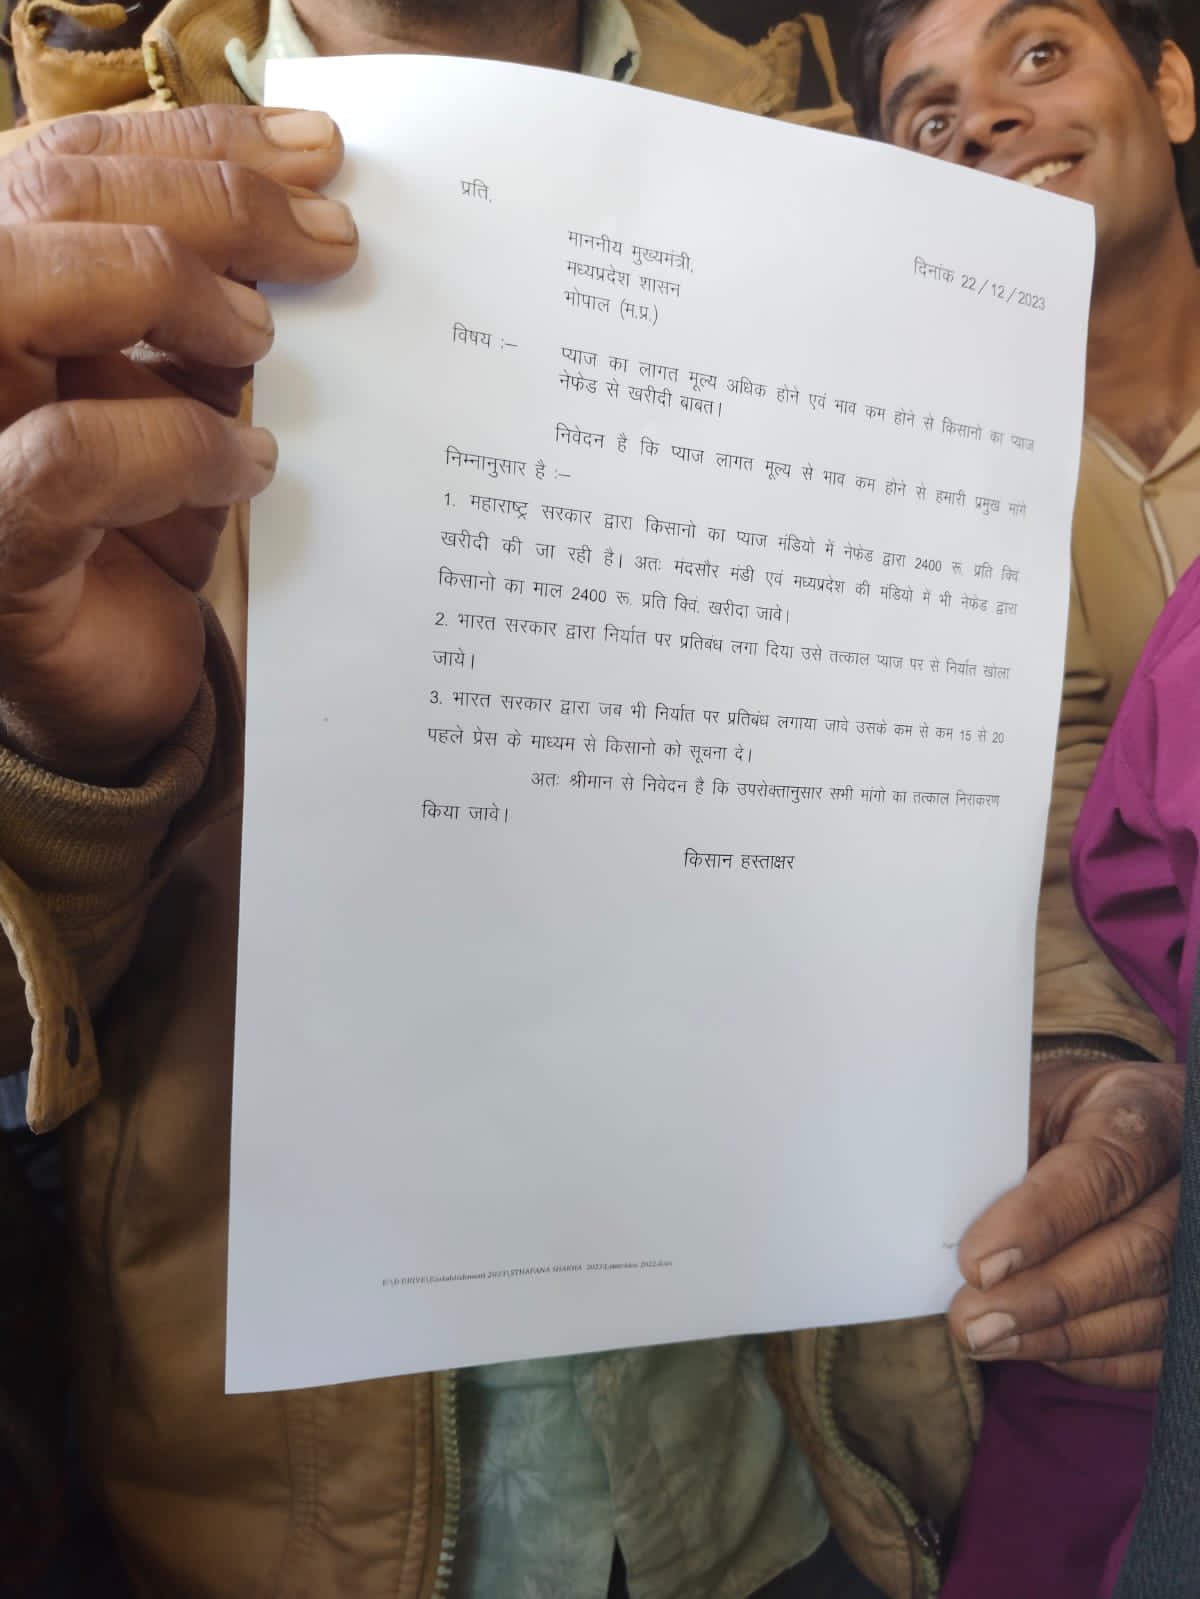 प्रति,
दिनांक 22/12/2023
माननीय मुख्यमंत्री,
मध्यप्रदेश शासन
भोपाल (म.प्र.)
विषय :– प्याज का लागत मूल्य अधिक होने एवं भाव कम होने से किसानो का प्याज
नेफेड से खरीदी बाबत।
निवेदन है कि प्याज लागत मूल्य से भाव कम होने से हमारी प्रमुख मांगे
निम्नानुसार है :–
1. महाराष्ट्र सरकार द्वारा किसानो का प्याज मंडियो में नेफेड द्वारा 2400 रू. प्रति क्विं
खरीदी की जा रही है। अतः मंदसौर मंडी एवं मध्यप्रदेश की मंडियो में भी नेफेड द्वारा
किसानो का माल 2400 रू. प्रति क्विं. खरीदा जावे।
2. भारत सरकार द्वारा निर्यात पर प्रतिबंध लगा दिया उसे तत्काल प्याज पर से निर्यात खोला
जाये।
3. भारत सरकार द्वारा जब भी निर्यात पर प्रतिबंध लगाया जावे उसके कम से कम 15 से 20
पहले प्रेस के माध्यम से किसानो को सूचना दे।
अतः श्रीमान से निवेदन है कि उपरोक्तानुसार सभी मांगो का तत्काल निराकरण
किया जावे।
किसान हस्ताक्षर
2023\STHAPANA SHAKHA